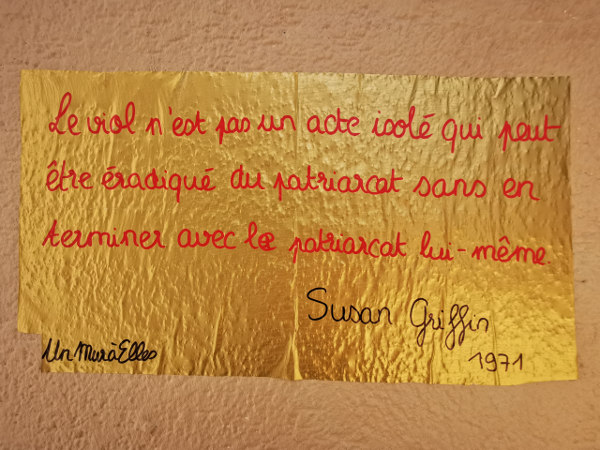 Le viol n'est pas un acte isolé qui peut
être éradiqué du patriarcat sans en
terminer avec le patriarcat lui-même.
Susan Griffin
1971
Un Mur à Elles